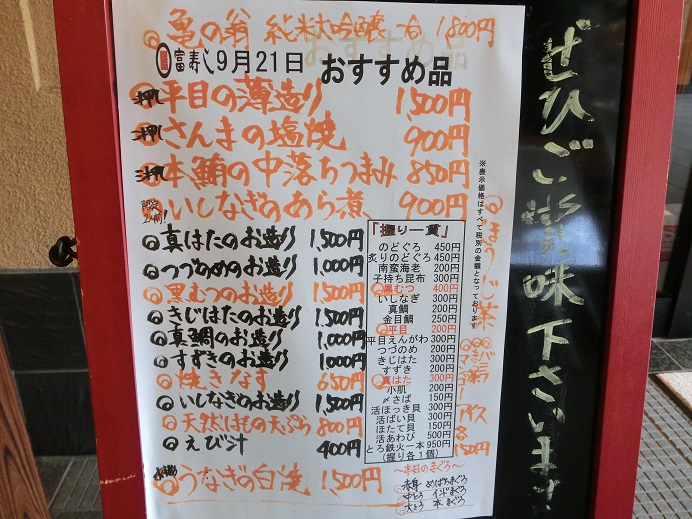 亀の翁 純米大吟醸 一合 1800円
富寿し 9月21日 おすすめ品
押し 平目の薄造り 1,500円
押し さんまの塩焼 900円
押し 本鮪の中落ちつまみ 850円
限定2個! いしなぎのあら煮 900円
真はたのお造り 1,500円
つづのめのお造り 1,000円
黒むつのお造り 1,500円
きじはたのお造り 1,500円
真鯛のお造り 1,000円
すずきのお造り 1,000円
焼きなす 650円
いしなぎのお造り 1,500円
天然はもの天ぷら 800円
えび汁 400円
うなぎの白焼 1,500円
「握り一貫」
のどぐろ 450円
炙りのどぐろ 450円
南蛮海老 200円
子持ち昆布 300円
黒むつ 400円
いしなぎ 300円
真鯛 200円
金目鯛 250円
平目 200円
平目えんがわ 300円
つづのめ 200円
きじはた 300円
すずき 200円
真はた 300円
小肌 200円
〆さば 150円
活ほっき貝 300円
活ばい貝 300円
ほたて貝 150円
活あわび 500円
とろ鉄火一本 950円
(握り各1個)
※表示価格はすべて税別の金額となっております
ほうじ茶
アイス 各150円
~本日のまぐろ~
赤身 めばちまぐろ
中とろ インドまぐろ
大とろ 本まぐろ
ぜひご賞味下さいませ